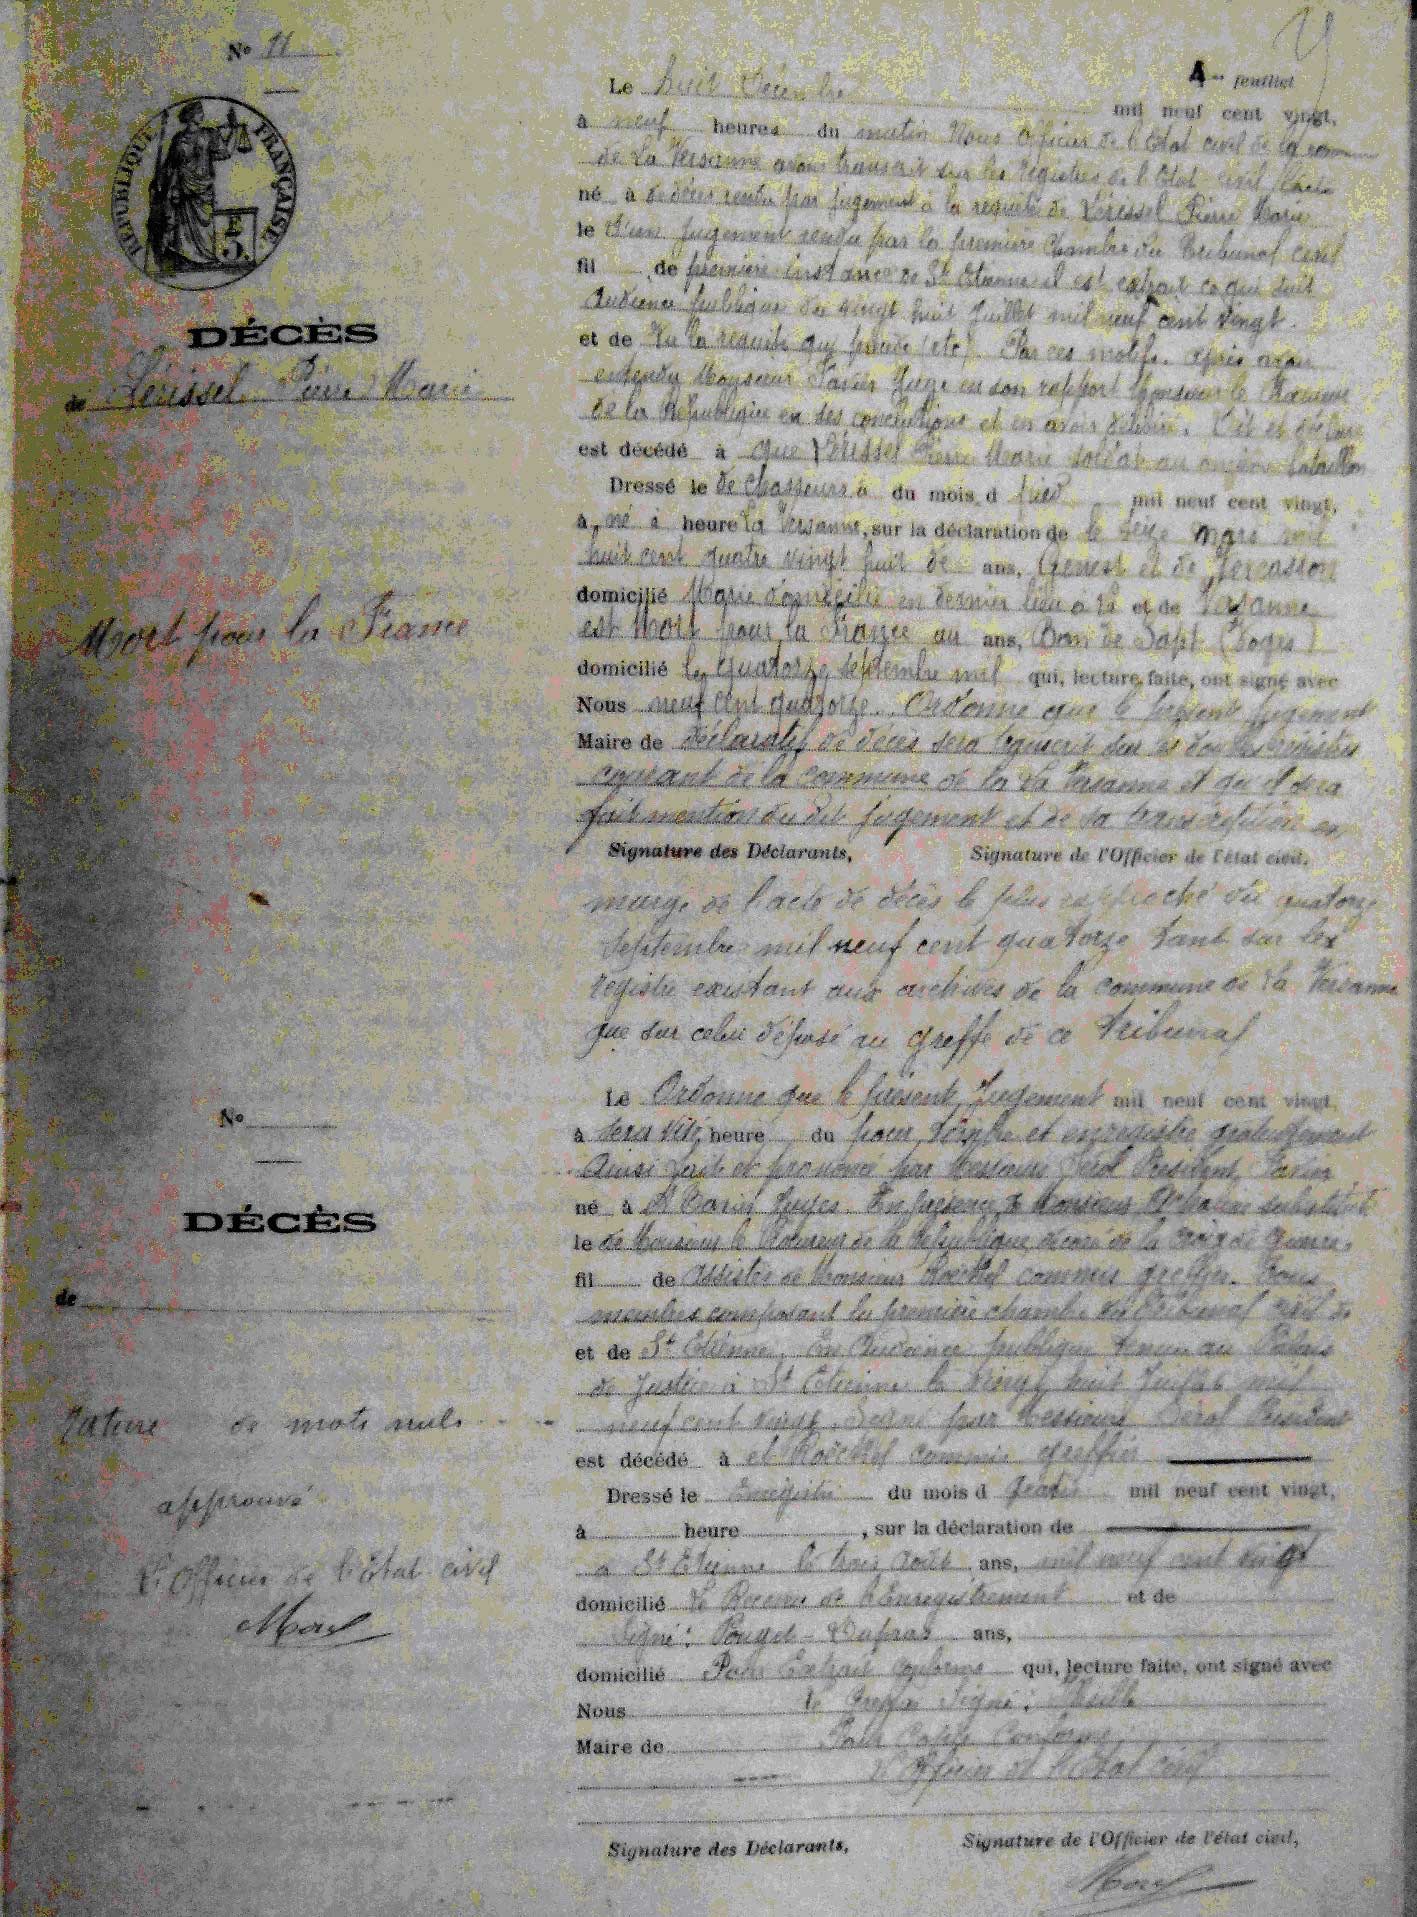 Nº 11
4e feuillet
RÉPUBLIQUE FRANÇAISE
DÉCÈS
de Lérissel Pierre Marie
Mort pour la France
Le huit Décembre mil neuf cent vingt,
à neuf heures du matin Nous Officier de l'Etat civil de la commune
de La Versanne avons transcrit sur les registres de l'Etat civil l'acte
né à de décès rendu par jugement à la requête de Lérissel Pierre Marie
le D'un jugement rendu par la première chambre du Tribunal civil
fil de première instance de St Etienne il est extrait ce qui suit
Audience publique du vingt huit Juillet mil neuf cent vingt.
et de Vu la requête qui précède (etc). Par ces motifs. après avoir
entendu Monsieur Juge en son rapport Monsieur le Procureur
de la République en ses conclusions et en avoir délibéré. Dit et déclare
est décédé à que Lérissel Pierre Marie soldat au onzième bataillon
Dressé le de chasseurs à du mois d pied mil neuf cent vingt,
à né à heure La Versanne, sur la déclaration de le seize mars mil
huit cent quatre vingt huit de ans, Genest et de
domicilié Marie domicilié en dernier lieu à La et de Versanne
est Mort pour la France au ans, Ban de Sapt (Vosges)
domicilié le quatorze septembre mil qui, lecture faite, ont signé avec
Nous neuf cent quatorze. Ordonne que le présent jugement
Maire de déclaratif de décès sera transcrit sur les doubles registres
courant de la commune de la La Versanne et qu'il sera
fait mention du dit jugement et de sa transcription en
Signature des Déclarants, Signature de l'Officier de l'état civil,
marge de l'acte de décès le plus rapproché du quatorze
Septembre mil neuf cent quatorze tant sur les
registre existant aux archives de la commune de La Versanne
que sur celui déposé au greffe de ce Tribunal
Nº
DÉCÈS
de
Le Ordonne que le présent Jugement mil neuf cent vingt,
à sera visé heure du pour timbre et enregistré gratuitement
Ainsi fait et prononcé par Messieurs Président,
né à Juges. En présence de Monsieur substitut
le de Monsieur le Procureur de la République, décoré de la croix de guerre.
fil de assistés de Monsieur commis greffier. Tous
membres composant la première chambre du Tribunal civil de
et de St Etienne. En Audience publique tenue au Palais
de Justice à St Etienne le vingt huit Juillet mil
neuf cent vingt. Signé par Messieurs Président
est décédé à et commis greffier
Dressé le Enregistré du mois d gratis mil neuf cent vingt,
à heure , sur la déclaration de
à St Etienne le trois Août ans, mil neuf cent vingt
domicilié Le Receveur de l'Enregistrement et de
Signé: ans,
domicilié Pour Extrait conforme qui, lecture faite, ont signé avec
Nous le Greffier Signé:
Maire de Pour Copie Conforme
L'Officier de l'Etat civil
Signature des Déclarants, Signature de l'Officier de l'état civil,
Rature de mots nuls
approuvé
L'Officier de l'état civil